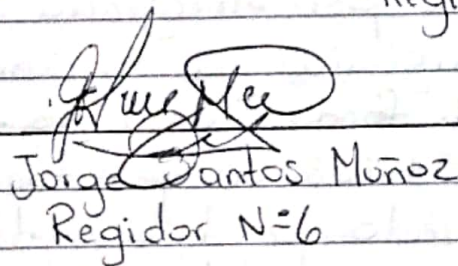 Regi
Jorge Santos Muñoz
Regidor N=6